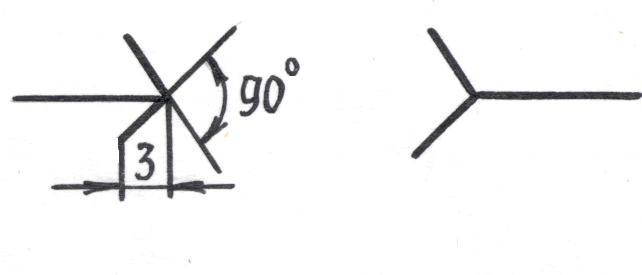 90°
3